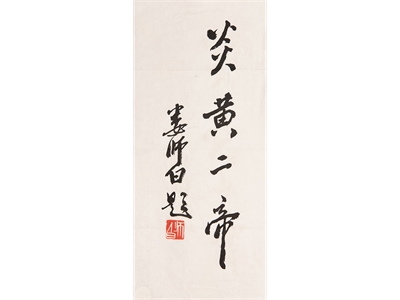 炎黄二帝
娄师白题